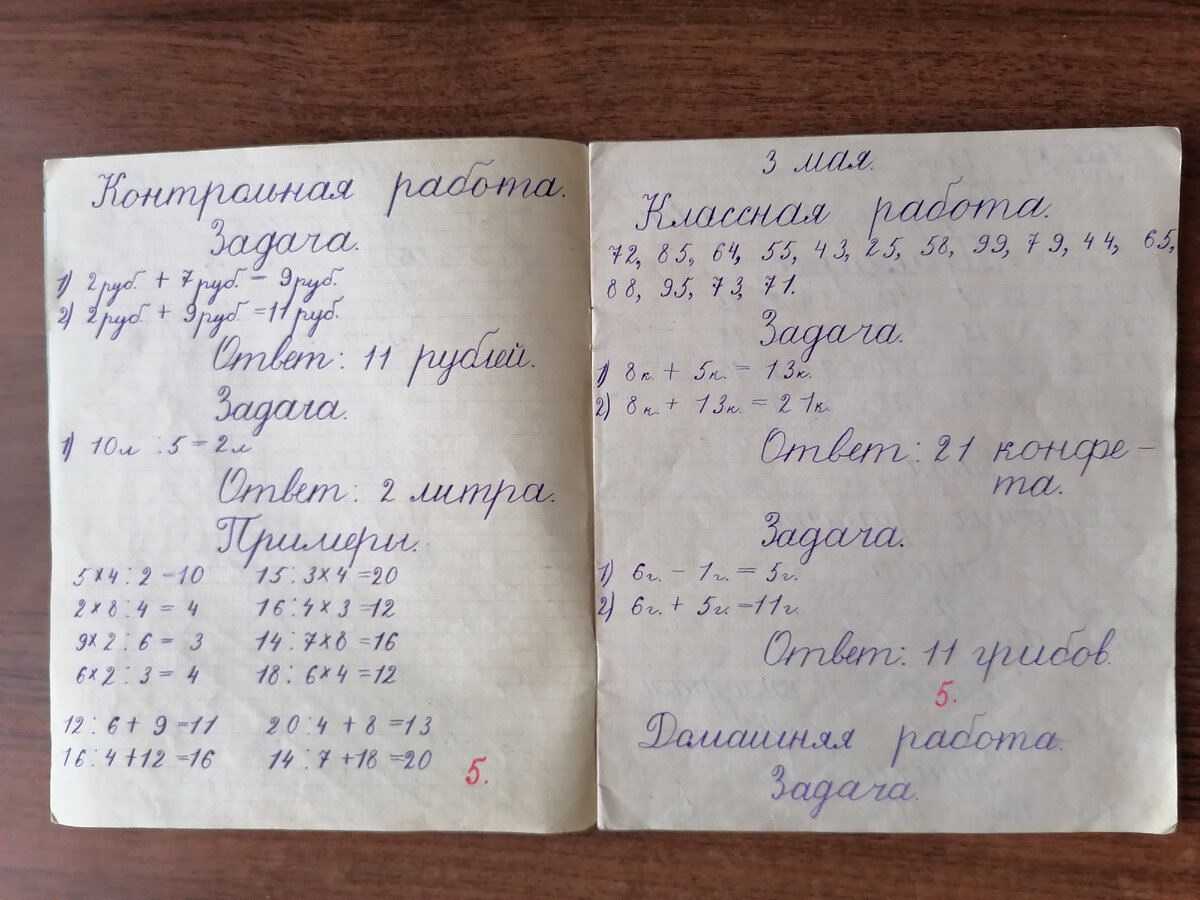 Контрольная работа.
Задача.
1) 2руб. + 7руб. - 9руб.
2) 2руб. + 9руб. = 11руб.
Ответ: 11 рублей.
Задача.
1) 10л : 5 = 2л
Ответ: 2 литра.
Примеры.
5×4:2-10 15:3×4=20
2×8:4=4 16:4×3=12
9×2:6=3 14:7×8=16
6×2:3=4 18:6×4=12
12:6+9=11 20:4+8=13
16:4+12=16 14:7+18=20
5.
3 мая.
Классная работа.
72, 85, 64, 55, 43, 25, 58, 99, 79, 44, 65,
88, 95, 73, 71.
Задача.
1) 8к. + 5к. = 13к.
2) 8к. + 13к. = 21к.
Ответ: 21 конфе-
та.
Задача.
1) 6г. - 1г. = 5г.
2) 6г. + 5г. -11г.
Ответ: 11 грибов.
5.
Домашняя работа.
Задача.